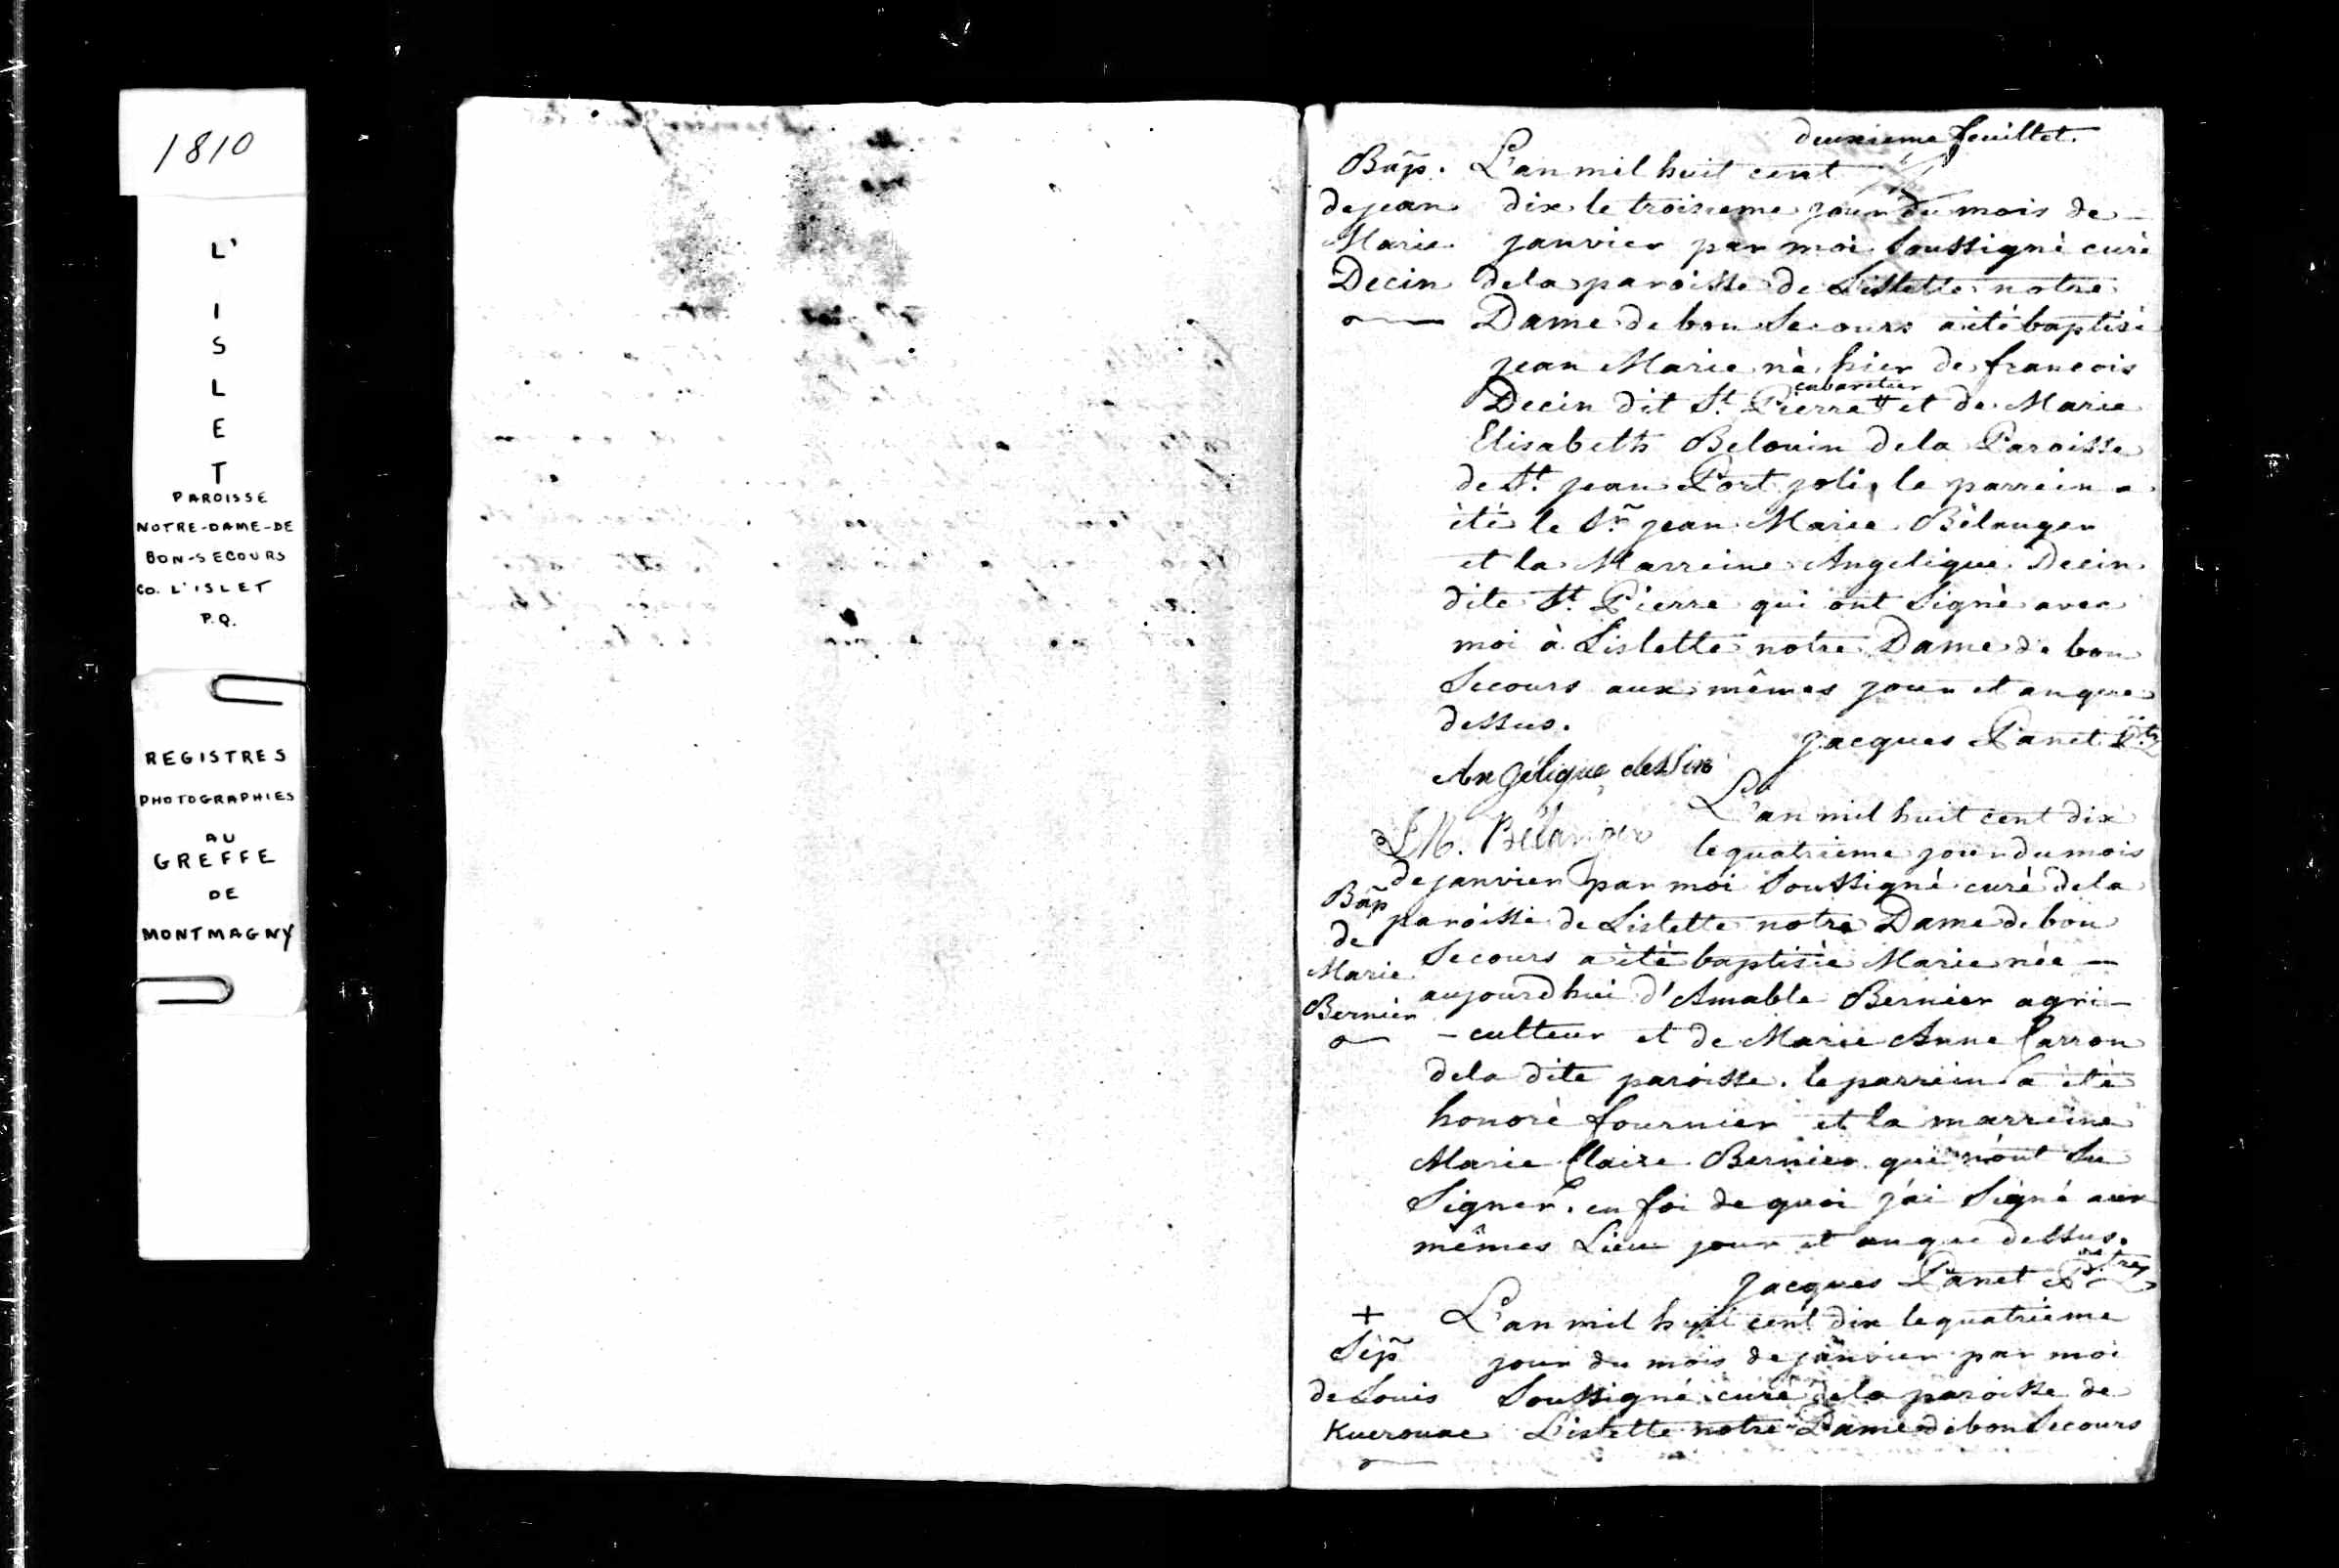 1810
L'
I
S
L
E
T
PAROISSE
NOTRE-DAME-DE
BON-SECOURS
CO. L'ISLET
P.Q.
REGISTRES
PHOTOGRAPHIES
AU
GREFFE
DE
MONTMAGNY
deuxieme feuillet.
Bap. L'an mil huit cent
de jean dix le troisieme jour du mois de
Marie janvier par moi soussigné curé
Decin de la paroisse de Lislette notre
Dame de bon Secours a été baptisé
jean Marie né hier de francois
cabaretier
Decin dit St. Pierre # et de Marie
Elisabeth Belouin de la Paroisse
de St. jean Port joli, le parrein a
été le Sr. jean Marie Bélanger
et la Marreine Angelique Decin
dite St. Pierre qui ont signé avec
moi à Lislette notre Dame de bon
Secours aux mêmes jour et an que
dessus.
Jacques Panet Ptre
Angélique dessin
L'an mil huit cent dix
J M. Bélanger le quatrieme jour du mois
de janvier par moi soussigné curé de la
Bap paroisse de Lislette notre Dame de bon
de Secours a été baptisée Marie née —
Marie aujourdhui d'Amable Bernier agri-
Bernier -culteur et de Marie Anne Carron
de la dite paroisse. le parrein a été
honoré fournier et la marreine
Marie Claire Bernier qui n'ont su
signer. en foi de quoi j'ai signé aux
mêmes Lieu jour et an que dessus.
Jacques Panet Ptre
+ L'an mil huit cent dix le quatrieme
Sép jour du mois de janvier par moi
de Louis soussigné curé de la paroisse de
Kuerouac Lislette notre Dame de bon Secours